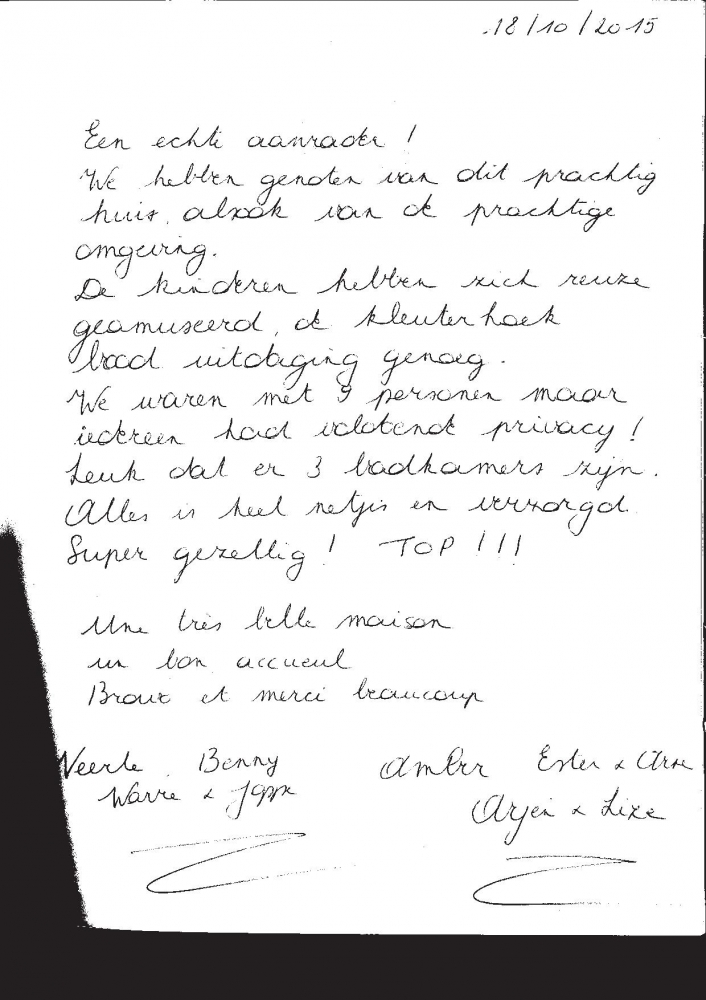 18/10/2015
Een echte aanrader !
We hebben genoten van dit prachtig
huis, alsook van de prachtige
omgeving.
De kinderen hebben zich reuze
geamuseerd, de kleuterhoek
bood uitdaging genoeg.
We waren met 9 personen maar
iedereen had voldoende privacy !
Leuk dat er 3 badkamers zijn.
Alles is heel netjes en verzorgd.
Super gezellig ! TOP !!!
Une très belle maison
un bon accueul
Bravo et merci beaucoup
Veerle Benny Amber Ester & Arne
Warre & Jappe Arjen & Lize